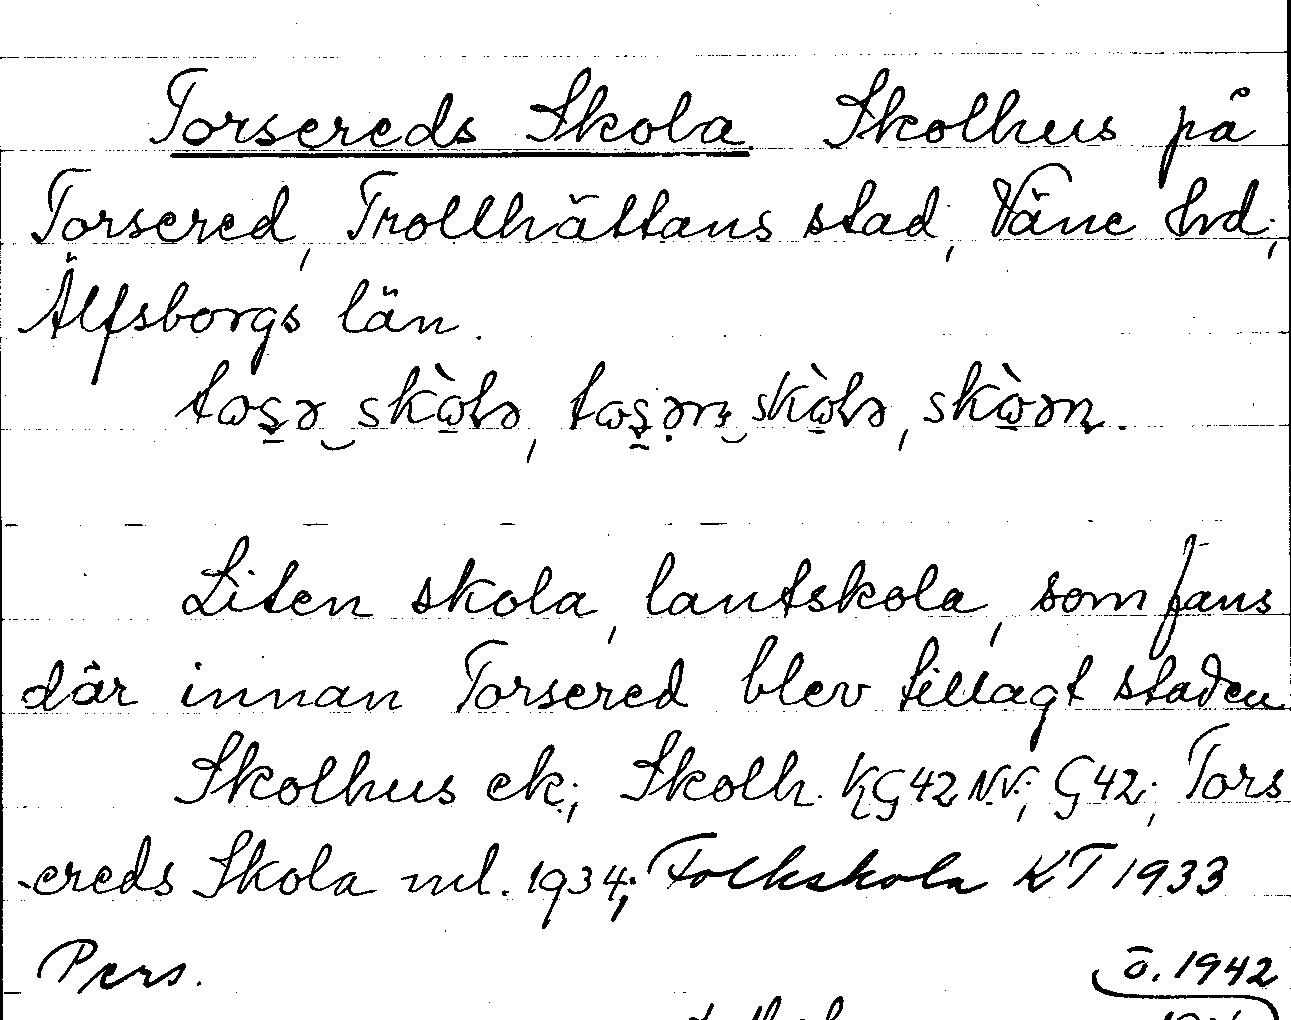 Torsereds Skola. Skolhus på
Torsered, Trollhättans stad, Väne hd;
Älfsborgs län.
Liten skola, lantskola, som fans
där innan Torsered blev tillagt staden
Skolhus ek; Skolh. KG42NV; G42; Tors
-ereds Skola ml. 1934; Folkskola KT 1933
Pers. ö. 1942